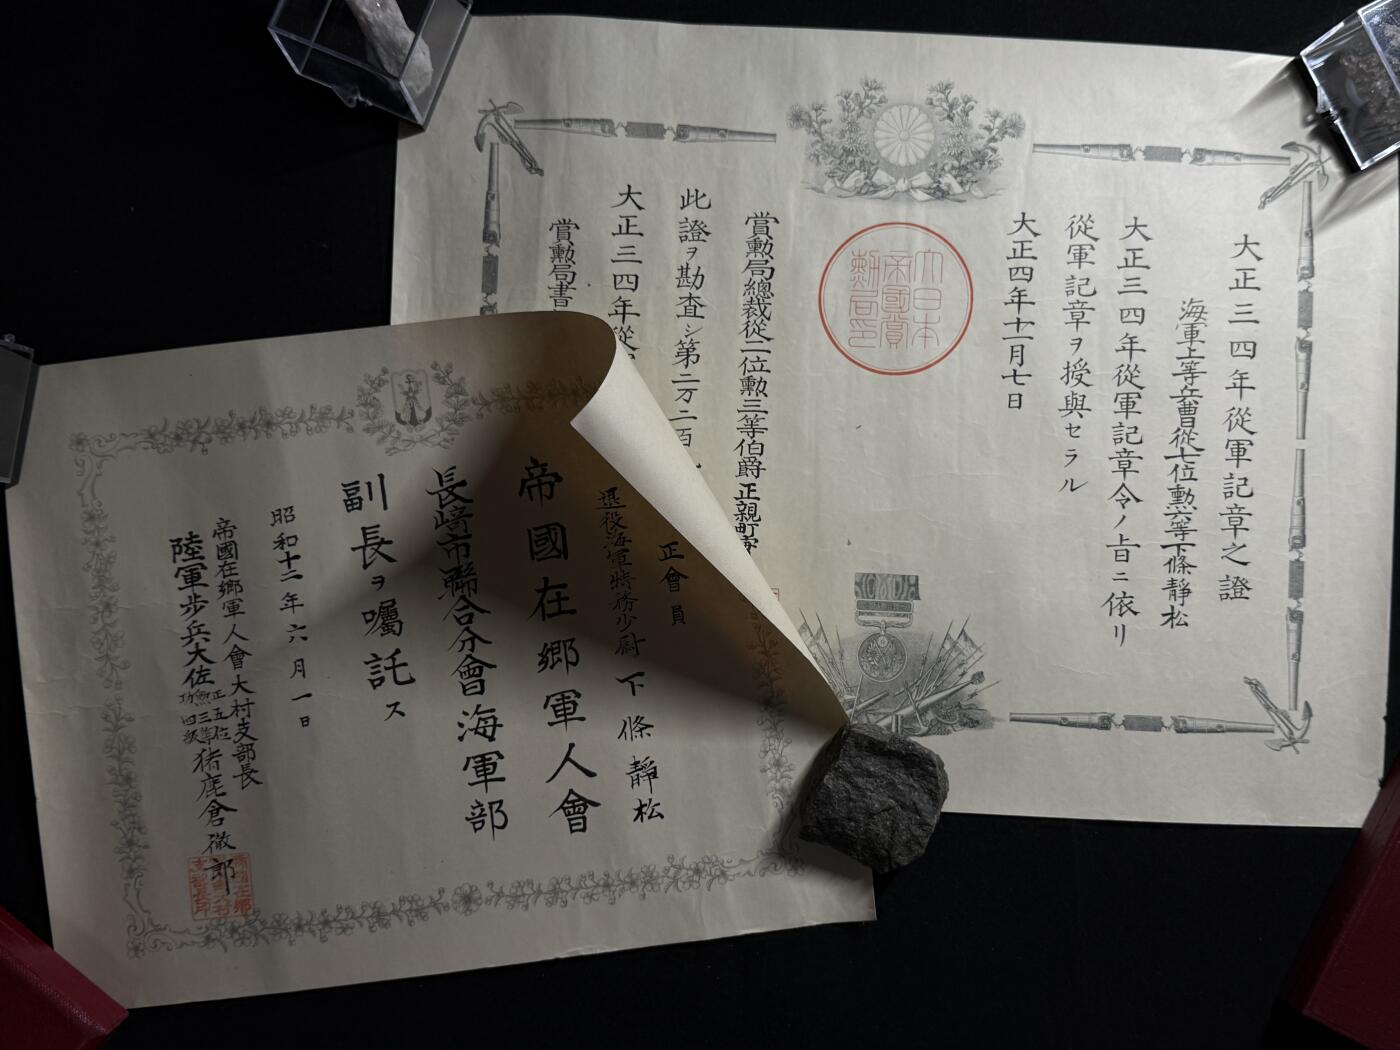 大正三四年從軍記章之證
海軍上等兵曹從七位勲六等下條靜松
大正三四年從軍記章令ノ旨ニ依リ
從軍記章ヲ授與セラル
大正四年十一月七日
大日本
帝國賞
勲局印
賞勲局總裁從二位勲三等伯爵正親町實
此證ヲ勘査シ第二万二百
大正三四年從
賞勲局書
正會員
退役海軍特務少尉 下條靜松
帝國在郷軍人會
長崎市聯合分會海軍部
副長ヲ囑託ス
昭和十二年六月一日
帝國在郷軍人會大村支部長
陸軍步兵大佐 正五位 勲三等 功四級 猪鹿倉徹郎